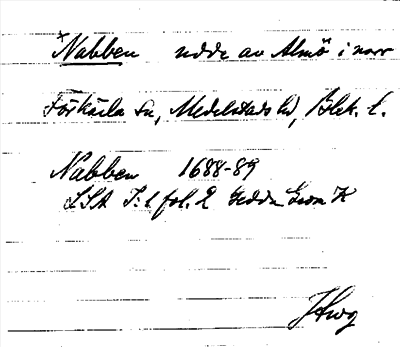 *Nabben udde av Almö i norr
Förkärla sn, Medelstads hd, Blek. l.
Nabben 1688-89
LSA I:1 fol. 2 Gedda Grom K